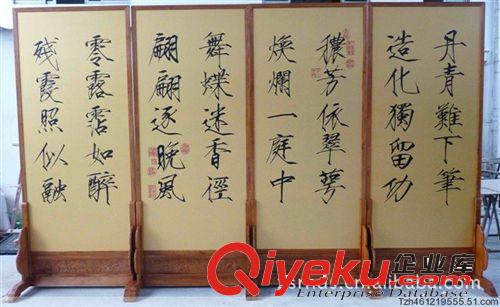 丹青難下筆
造化獨留功
穠芳依翠萼
煥爛一庭中
舞蝶迷香徑
翩翩逐晚風
零露霑如醉
殘霞照似融
企业库
Qiyeku.com
Enterprise Database
Tzh461219555.51.com